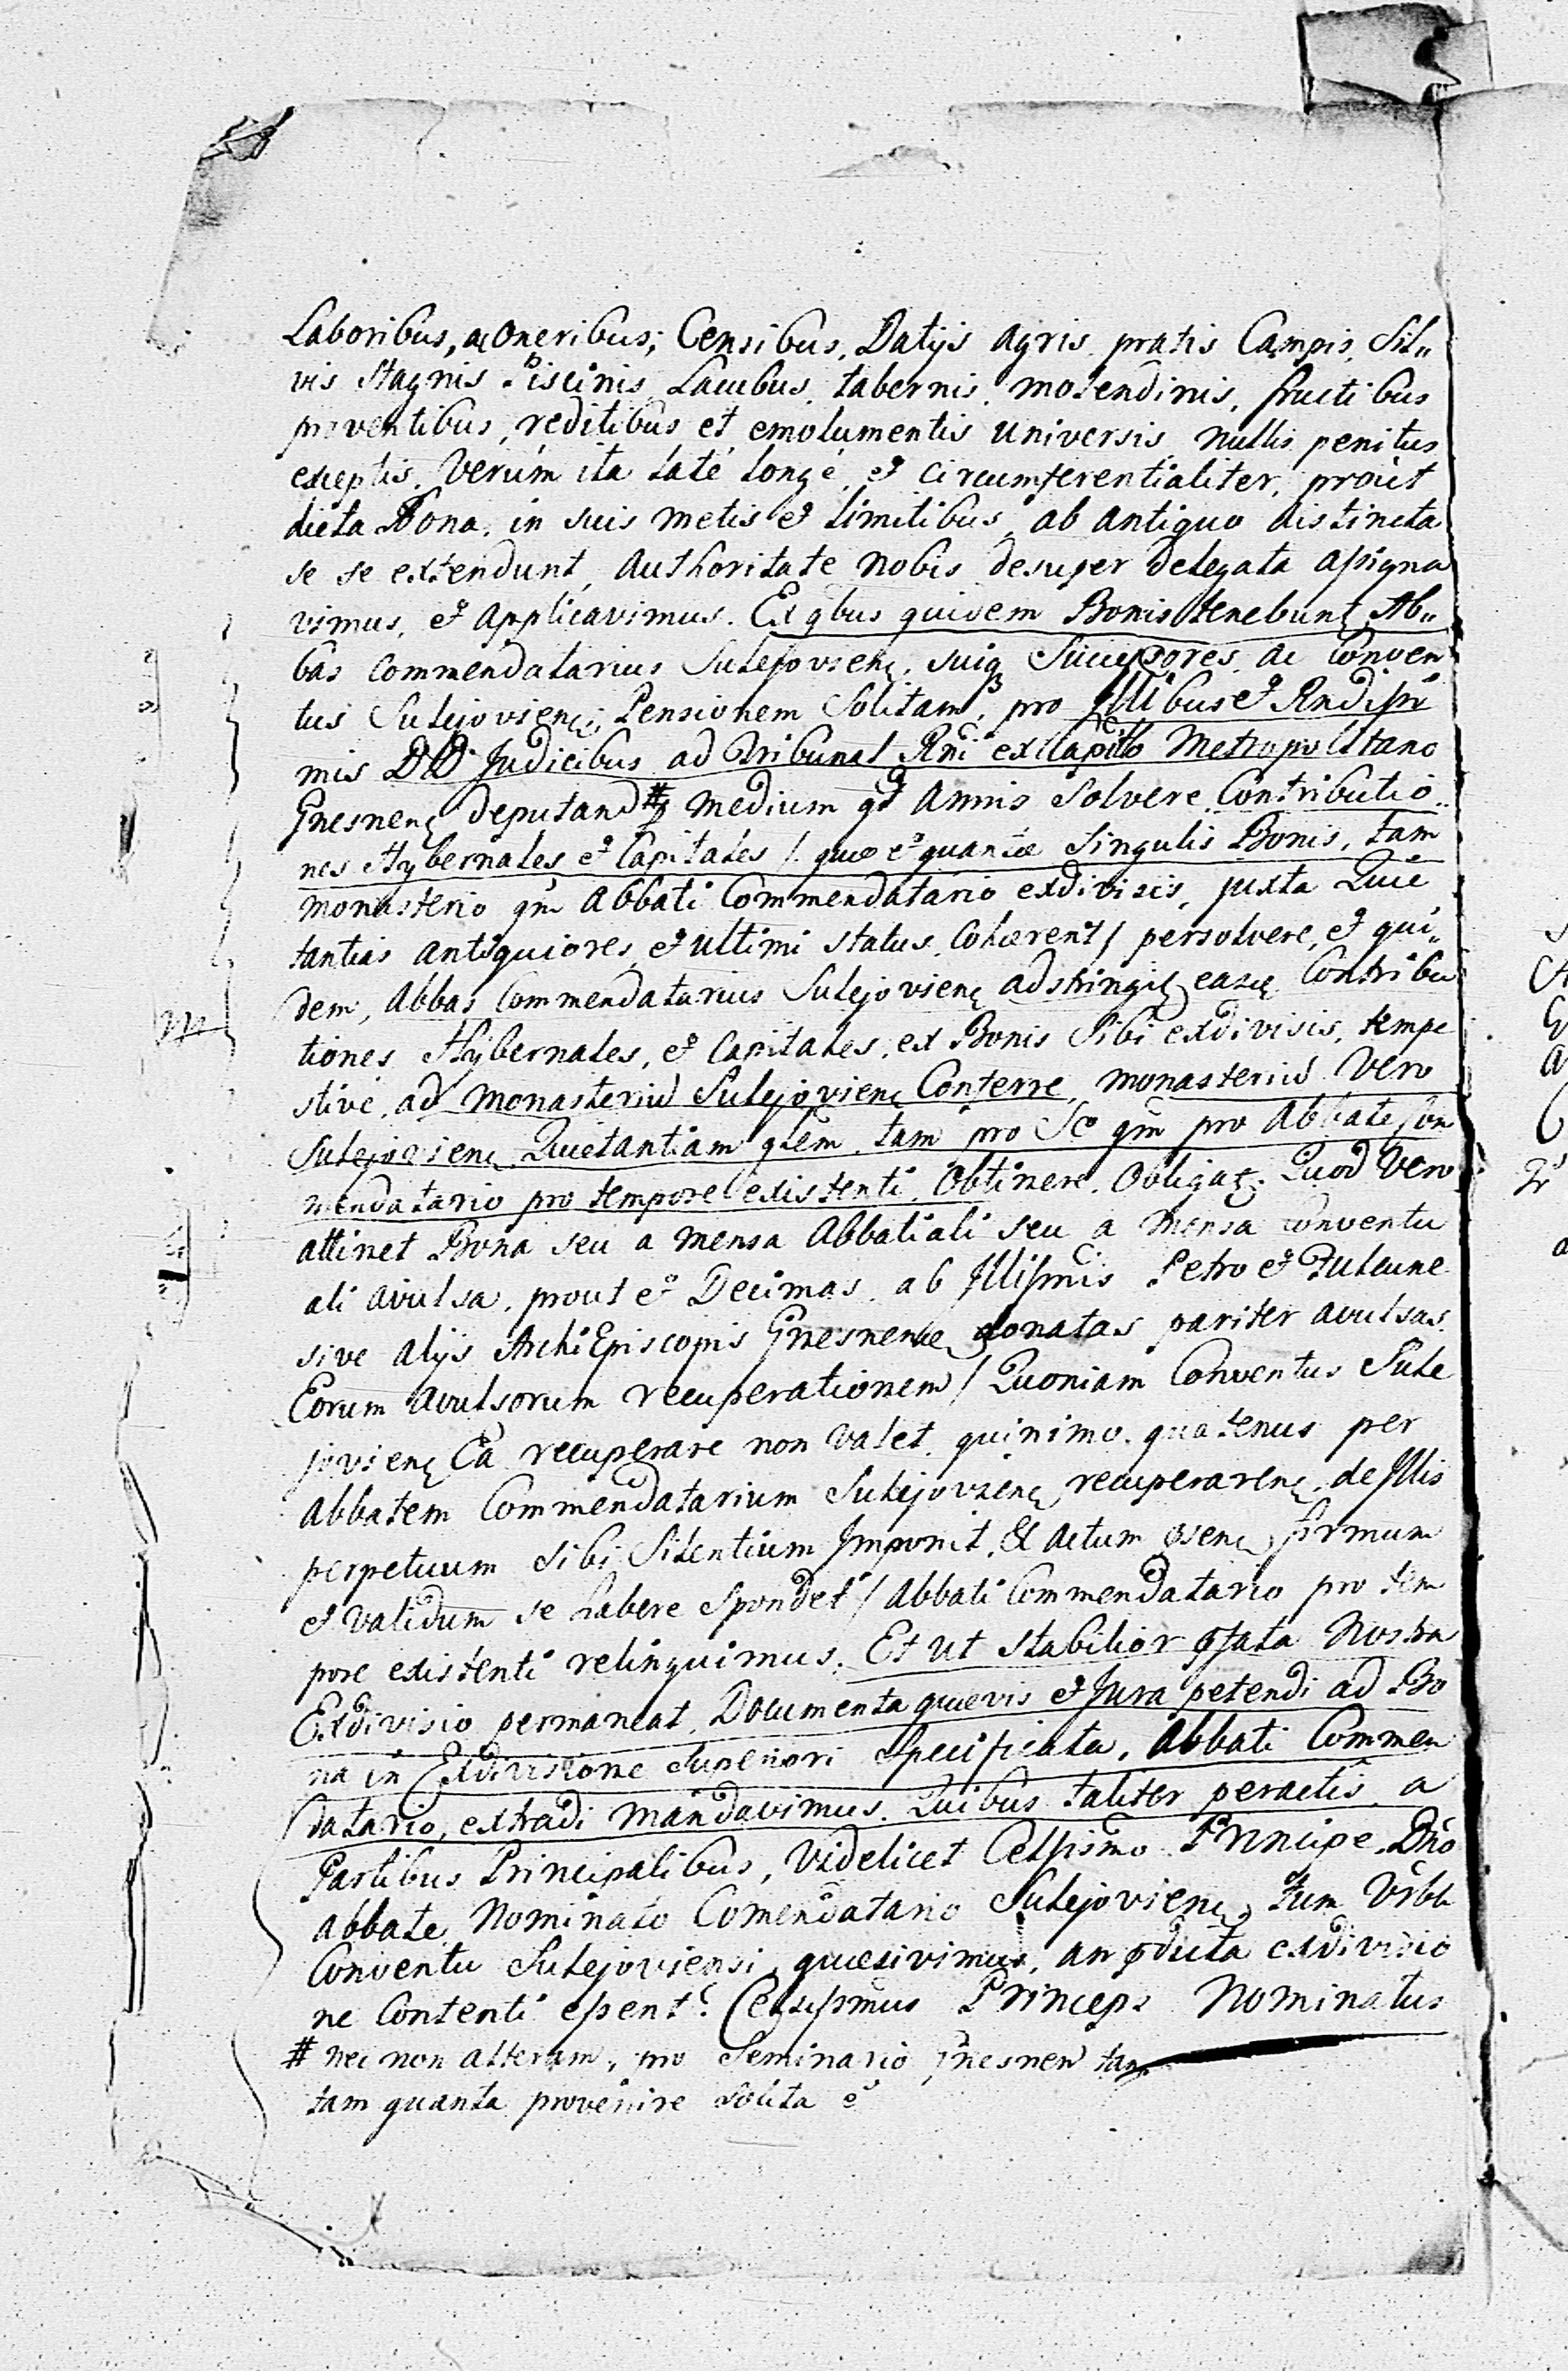 Laboribus, ac Oneribus; Censibus, Datijs agris pratis Campis, Sil„
vis Stagnis Piscinis Lacubus, tabernis, molendinis, fructibus
proventibus, reditibus et emolumentis universis nullis penitus
exceptis. Verum ita laté longé, et circumferentialiter, prout
dicta Bona, in suis metis et limitibus, ab antiquo distincta
se se extendunt, Authoritate nobis desuper delegata assigna
vimus, et applicavimus. Ex qbus quidem Bonis tenebunt Ab„
bas Commendatarius Sulejovien, suiq Successores, ac Conven
tus Sulejovien, Pensionem Solitam, pro Illibus et Rndissi
mis DD Judicibus ad Tribunal Rni ex Capitlo Metropolitano
Gnesnen deputand # medium qd annis Solvere. Contributio„
nes Hybernales et Capitales /. quæ et quantæ singulis Bonis, tam
monasterio qm Abbati Commendatario exdivisis, juxta Quie
tantias antiquiores, et ultimi status, Cohærent / persolvere, et qui„
dem, Abbas Commendatarius Sulejovien adstringit easq Contribu
tiones Hybernales, et Capitales, ex Bonis Sibi exdivisis, tempe
stivé, ad Monasteriu Sulejovien Conferre, monasteriu Vero
Sulejovien, Quietantiam qlem, tam pro Se qm pro Abbate Com
mendatario pro tempore existenti, Obtinere, Obligat. Quod Vero
attinet Bona seu a mensa Abbatiali seu a mensa Conventu
ali avulsa, prout et Decimas, ab Illissmis Petro et Fulcone
sive alijs ArchiEpiscopis Gnesnen donatas pariter avulsas.
Eorum avulsorum recuperationem / Quoniam Conventus Sule
jovien Ea recuperare non valet, quinimo, quatenus per
Abbatem Commendatarium Sulejovien recuperaren, de Illis
perpetuum sibi Silentium Imponit, Et actum psen, firmum
et validum se habere Spondet / Abbati Commendatario pro tem
pore existenti relinquimus. Et ut stabilior pfata Nostra
Exdivisio permaneat, Documenta quævis et Jura petendi ad Bo
na in Exdivisione Superiori Specificata, Abbati Commen
datario, extradi mandavimus. Quibus taliter peractis, a
Partibus Principalibus, Videlicet Celssismo Principe Dno
Abbate Nominato Comendatario Sulejovien, tum Vrbli
Conventu Sulejoviensi, quæsivimus, an pdicta exdivisio
ne Contenti essent? Celsissmus Princeps Nominatus
# nec non alteram, pro Seminario Gnesnen tan
tam quanta provenire solita e